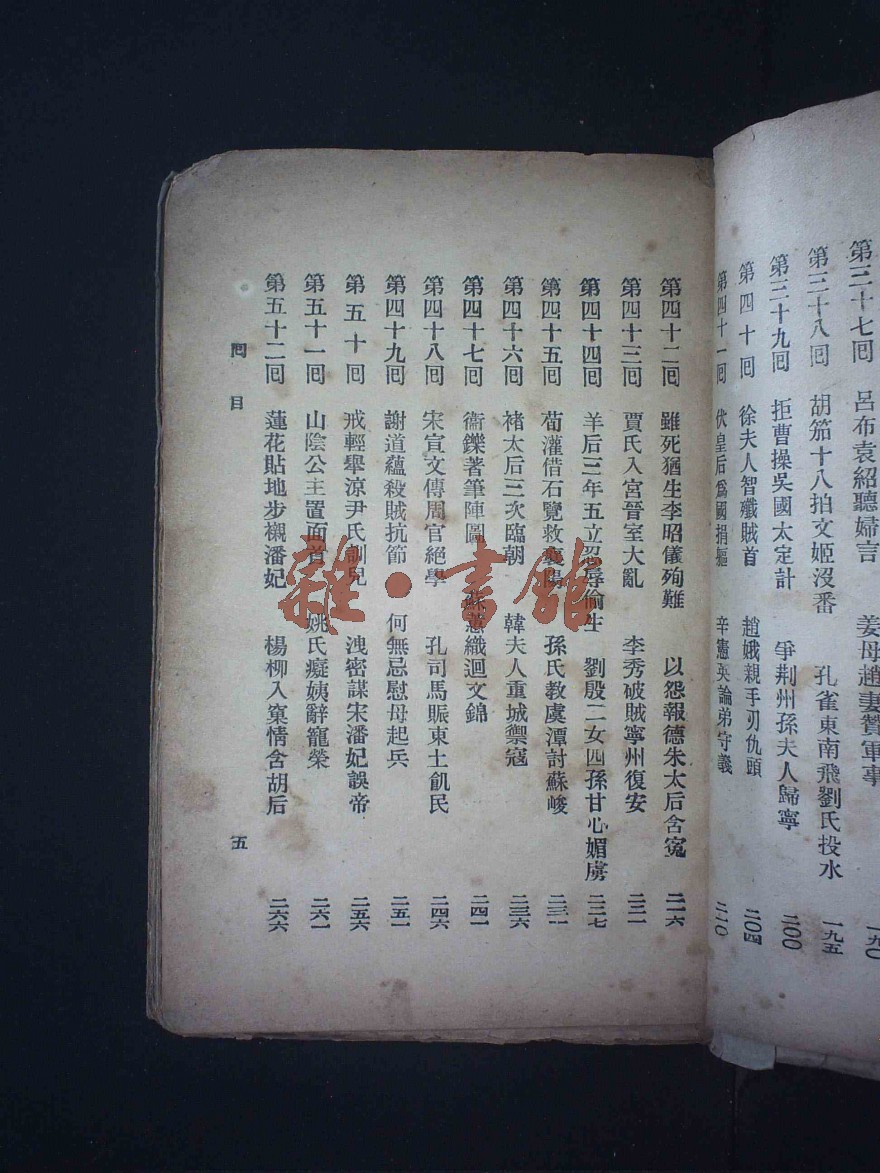 第三十七囘 呂布袁紹聽婦言 姜母趙妻贊軍事 一九〇
第三十八囘 胡笳十八拍文姬沒番 孔雀東南飛劉氏投水 一九五
第三十九囘 拒曹操吳國太定計 爭荆州孫夫人歸寧 二〇〇
第四十囘 徐夫人智殲賊首 趙娥親手刃仇頭 二〇四
第四十一囘 伏皇后爲國捐軀 辛憲英論弟守義 二一〇
第四十二囘 雖死猶生李昭儀殉難 以怨報德朱太后含寃 二一六
第四十三囘 賈氏入宮晉室大亂 李秀破賊寧州復安 二二一
第四十四囘 羊后三年五立忍辱偷生 劉殷二女四孫甘心媚虜 二二七
第四十五囘 荀灌借石覽救襄陽 孫氏教虞潭討蘇峻 二三一
第四十六囘 褚太后三次臨朝 韓夫人重城禦寇 二三六
第四十七囘 衞鑠著筆陣圖 蘇蕙織迴文錦 二四一
第四十八囘 宋宣文傳周官絕學 孔司馬賑東土飢民 二四六
第四十九囘 謝道蘊殺賊抗節 何無忌慰母起兵 二五一
第五十囘 戒輕舉涼尹氏訓兒 洩密謀宋潘妃誤帝 二五六
第五十一囘 山陰公主置面首 姚氏癡姨辭寵榮 二六一
第五十二囘 蓮花貼地步襯潘妃 楊柳入窠情含胡后 二六六
囘目 五
雜·書館